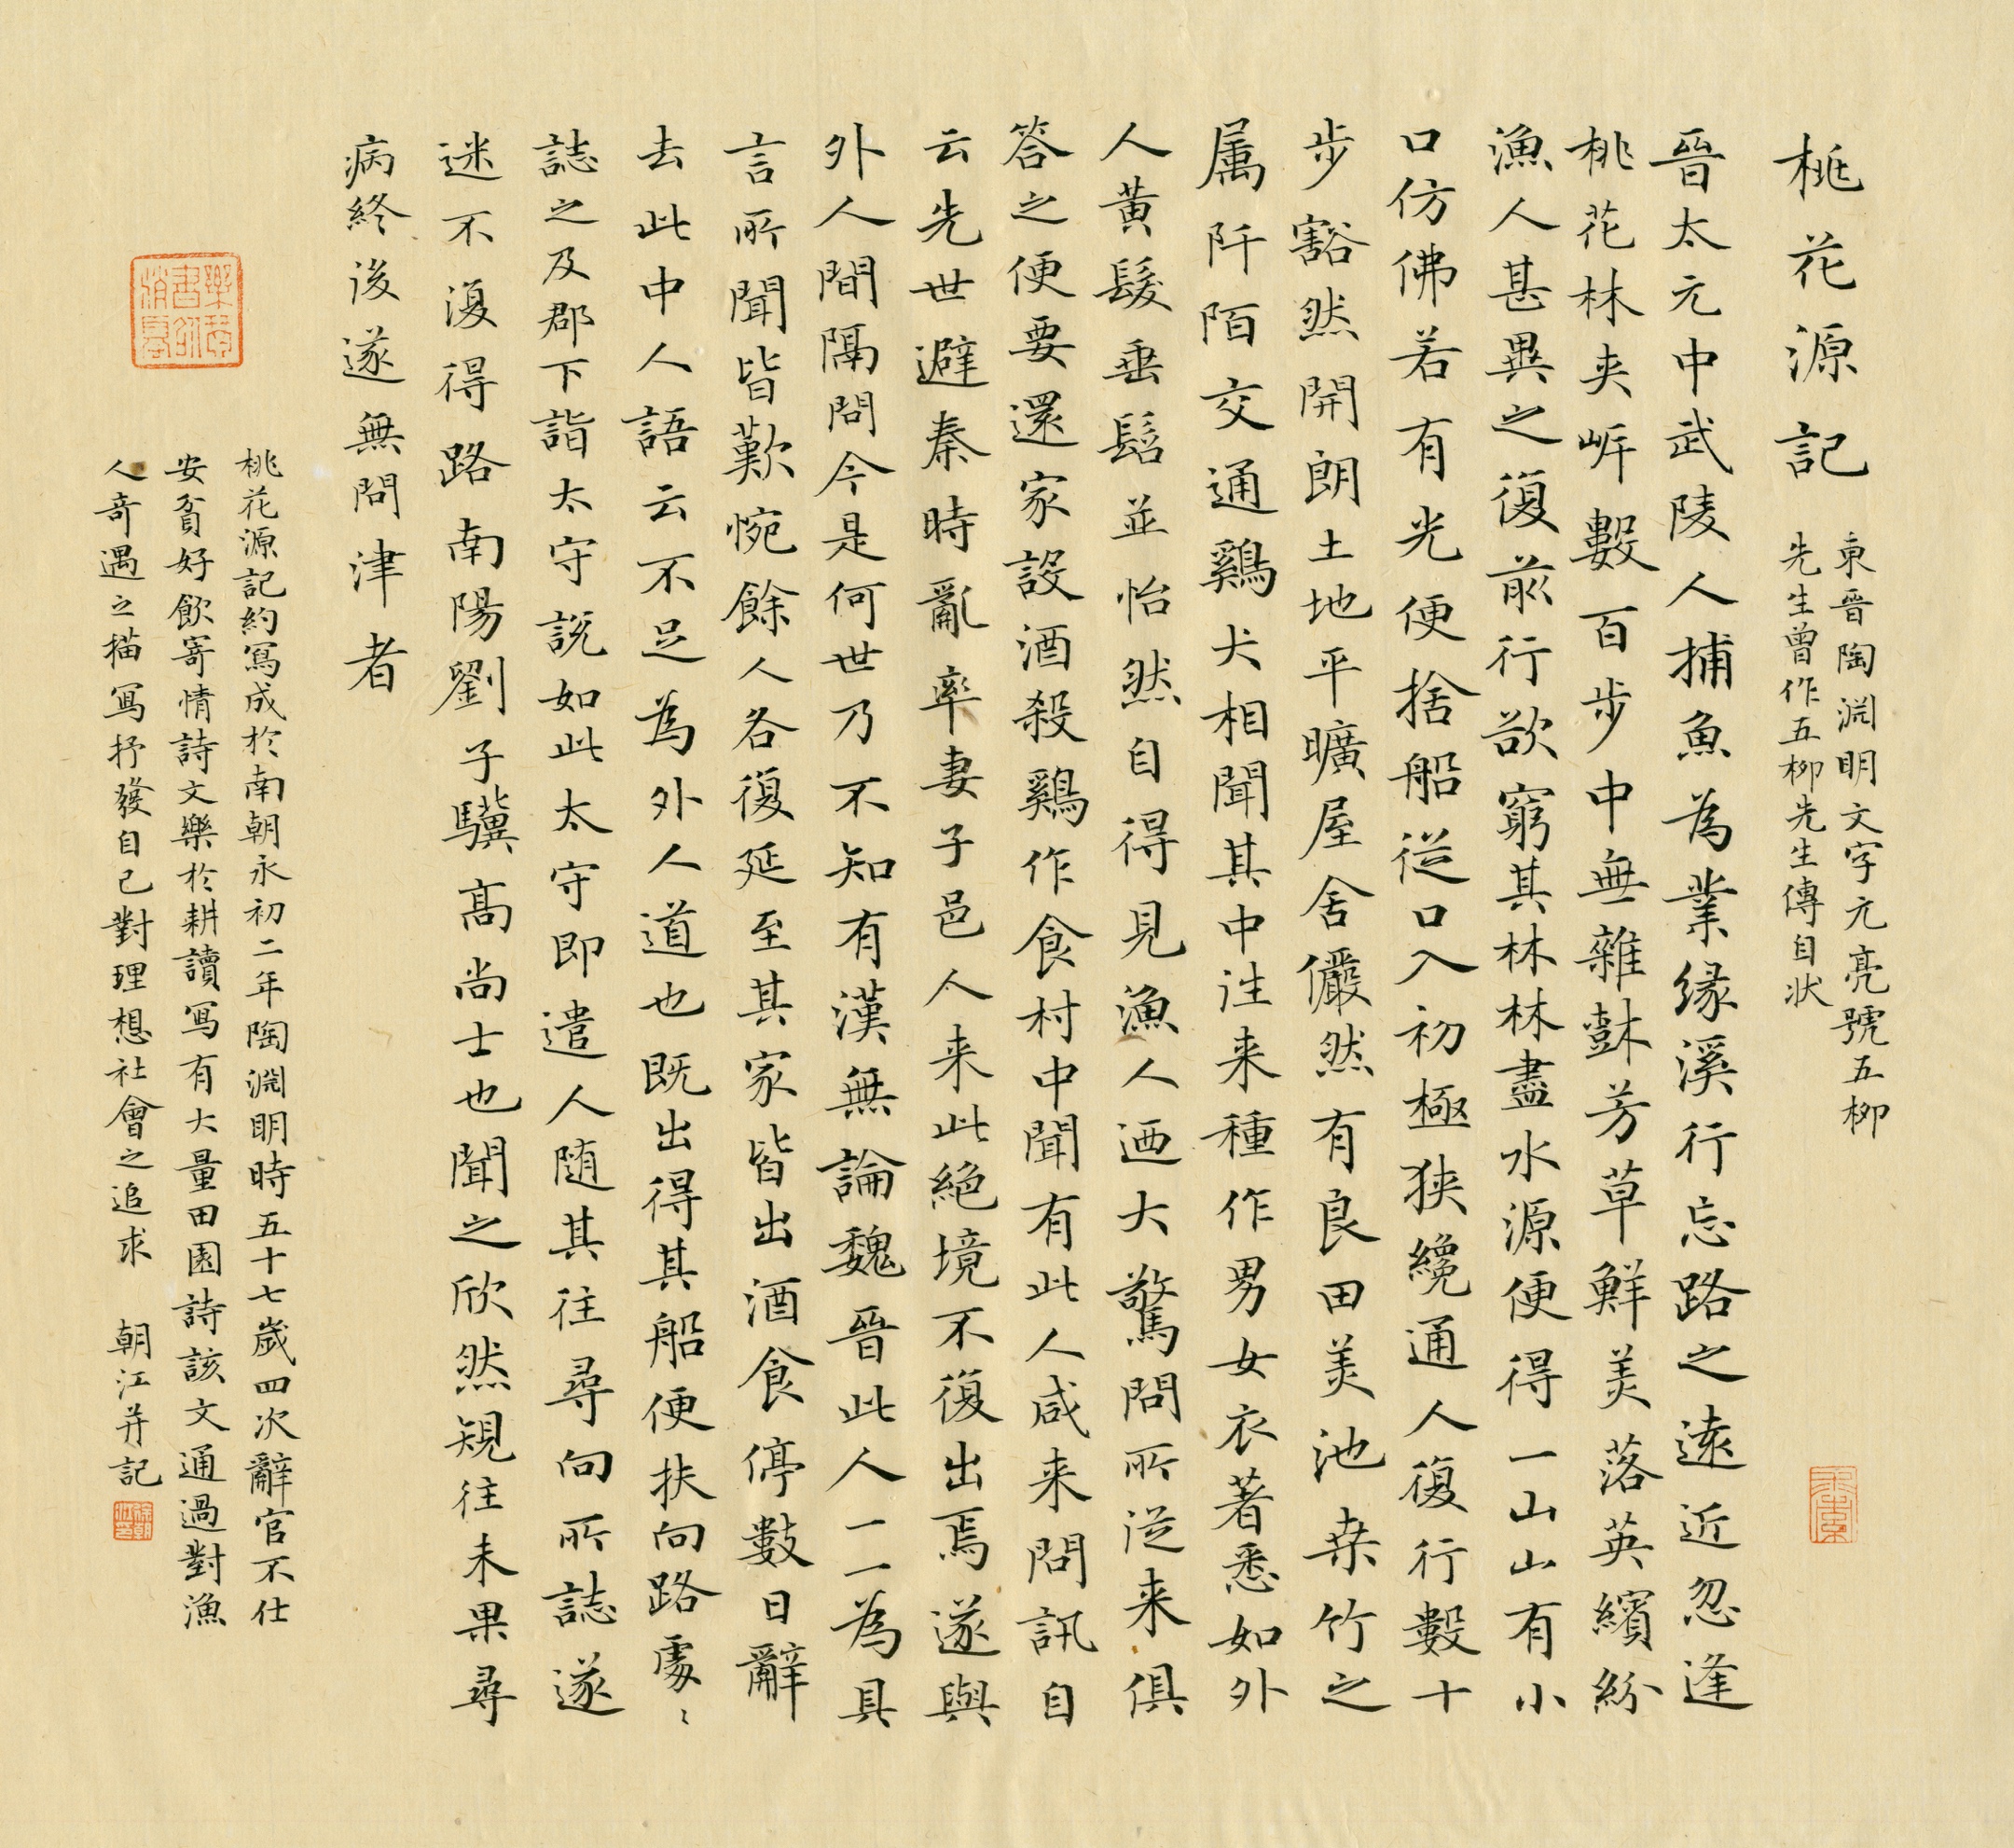 桃花源記
東晉陶淵明文字元亮號五柳
先生曾作五柳先生傳自狀
晉太元中武陵人捕魚為業緣溪行忘路之遠近忽逢
桃花林夾岸數百步中無雜樹芳草鮮美落英繽紛
漁人甚異之復前行欲窮其林林盡水源便得一山山有小
口仿佛若有光便捨船從口入初極狹纔通人復行數十
步豁然開朗土地平曠屋舍儼然有良田美池桑竹之
属阡陌交通鷄犬相聞其中往来種作男女衣著悉如外
人黃髮垂髫並怡然自得見漁人迺大驚問所從来俱
答之便要還家設酒殺鷄作食村中聞有此人咸来問訊自
云先世避秦時亂率妻子邑人来此絕境不復出焉遂與
外人間隔問今是何世乃不知有漢無論魏晉此人一一為具
言所聞皆歎惋餘人各復延至其家皆出酒食停數日辭
去此中人語云不足為外人道也既出得其船便扶向路處〻
誌之及郡下詣太守説如此太守即遣人随其往尋向所誌遂
迷不復得路南陽劉子驥高尚士也聞之欣然規往未果尋
病終後遂無問津者
桃花源記約寫成於南朝永初二年陶淵明時五十七歲四次辭官不仕
安貧好飲寄情詩文樂於耕讀寫有大量田園詩該文通過對漁
人奇遇之描寫抒發自己對理想社會之追求 朝江并記